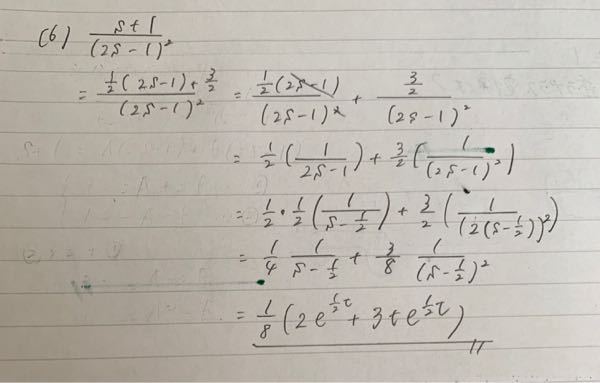 (6) \frac{s+1}{(2s-1)^2}
= \frac{\frac{1}{2}(2s-1)+\frac{3}{2}}{(2s-1)^2} = \frac{\frac{1}{2}(2s-1)}{(2s-1)^2} + \frac{\frac{3}{2}}{(2s-1)^2}
= \frac{1}{2}(\frac{1}{2s-1}) + \frac{3}{2}(\frac{1}{(2s-1)^2})
= \frac{1}{2}・\frac{1}{2}(\frac{1}{s-\frac{1}{2}}) + \frac{3}{2}(\frac{1}{(2(s-\frac{1}{2}))^2})
= \frac{1}{4} \frac{1}{s-\frac{1}{2}} + \frac{3}{8} \frac{1}{(s-\frac{1}{2})^2}
= \frac{1}{8}(2e^{\frac{1}{2}t} + 3te^{\frac{1}{2}t})